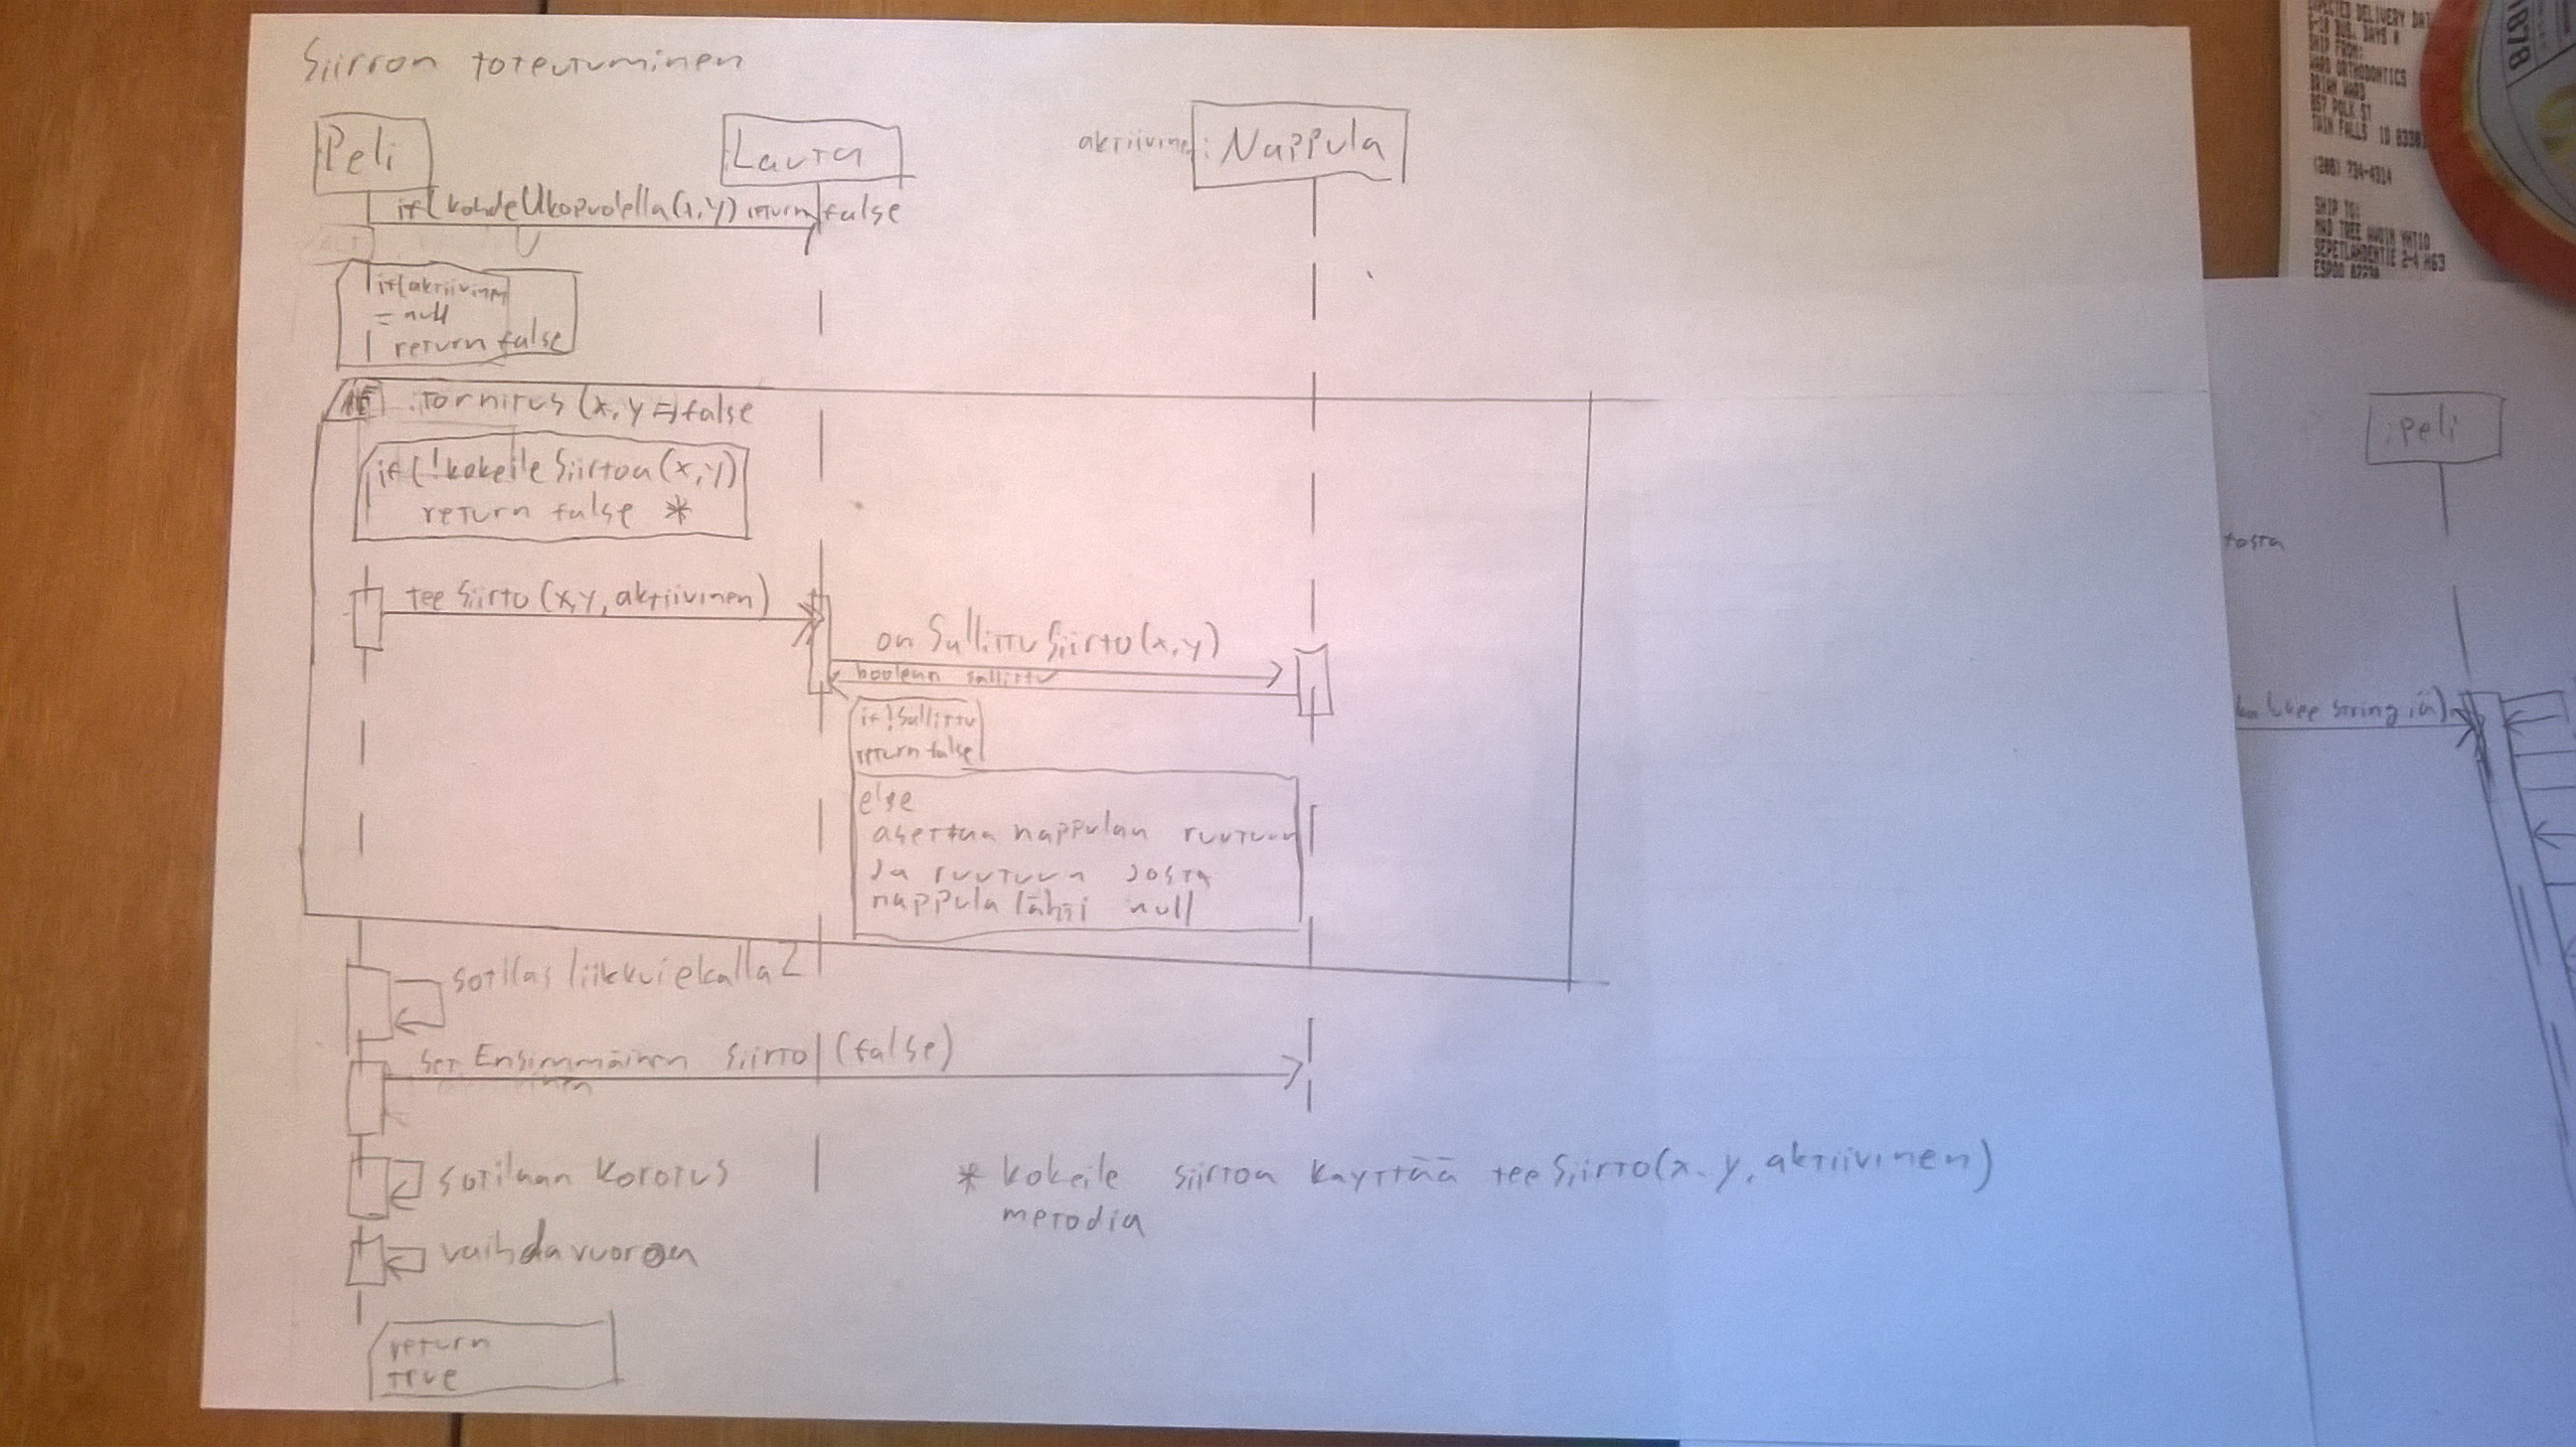 Siirron toteutuminen
Peli
Lauta
aktiivinen: Nappula
if(kohdeUlkopuolella(x,y) return false
if(aktiivinen
= null
return false
IF
Tornitus (x, y =) false
if(!kokeile Siirtoa(x,y)
return false *
tee Siirto (x,y, aktiivinen)
on Sallittu Siirto(x,y)
boolean sallittu
if !Sallittu
return false
else
asettaa nappulan ruutuun
Ja ruutuun Josta
nappula lähti null
sotilas liikkui ekalla 2
set Ensimmäinen siirto (false)
sotilaan korotus
vaihda vuoroa
return
true
* kokeile siirtoa käyttää tee Siirto(x. y, aktiivinen)
metodia
:Peli
tosta
lukee string iä)
EXPECTED DELIVERY DAT
6-10 BUS. DAYS
SHIP FROM:
WARD ORTHODONTICS
BRIAN WARD
857 POLK ST
TWIN FALLS ID 8330
(208) 734-4314
SHIP TO:
MAD TREE
SEPETLAHDENTIE 2-4 H63
ESPOO 02230
1878